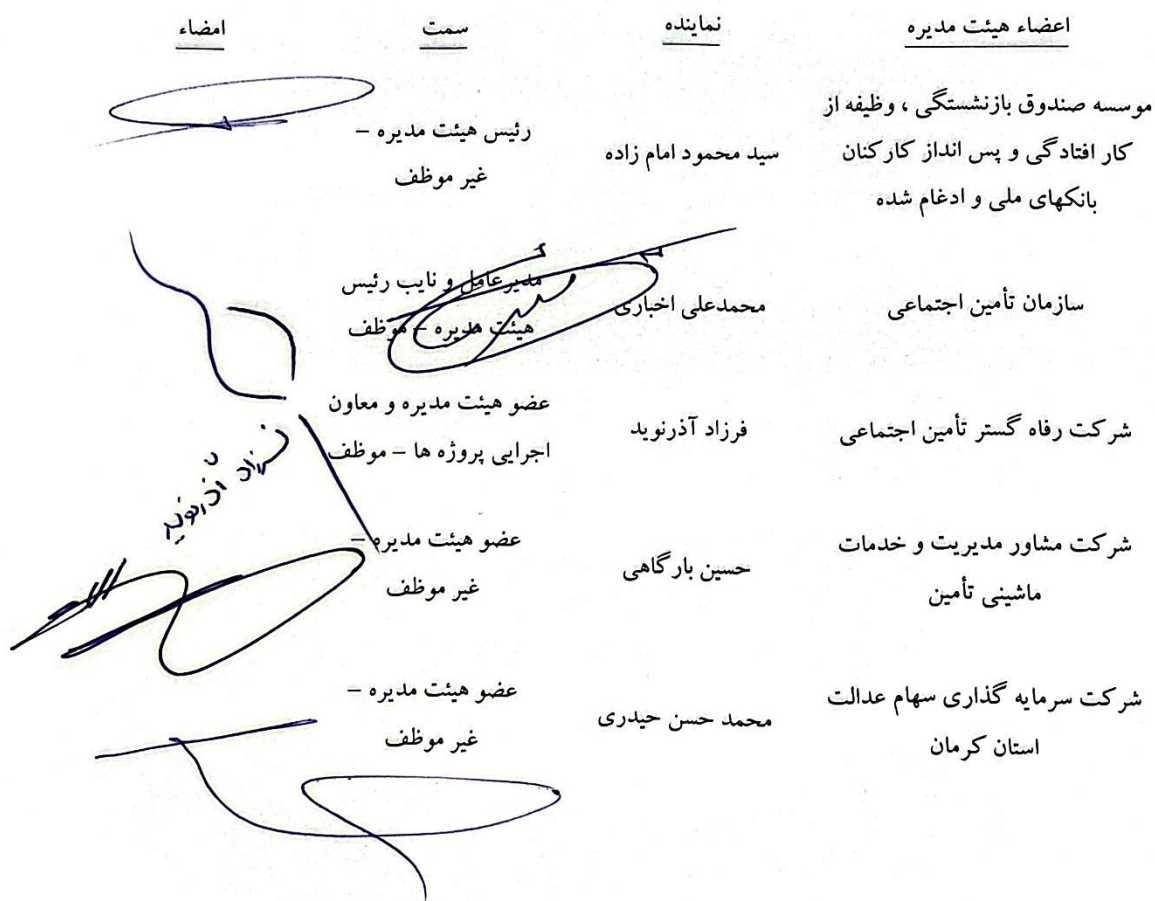 اعضاء هیئت مدیره نماینده سمت امضاء
موسسه صندوق بازنشستگی ، وظیفه از
کار افتادگی و پس انداز کارکنان
بانکهای ملی و ادغام شده
سید محمود امام زاده
رئیس هیئت مدیره –
غیر موظف
سازمان تأمین اجتماعی
محمدعلی اخباری
مدیرعامل و نایب رئیس
هیئت مدیره – موظف
شرکت رفاه گستر تأمین اجتماعی
فرزاد آذرنوید
عضو هیئت مدیره و معاون
اجرایی پروژه ها – موظف
فرزاد آذرنوید
شرکت مشاور مدیریت و خدمات
ماشینی تأمین
حسین بارگاهی
عضو هیئت مدیره –
غیر موظف
شرکت سرمایه گذاری سهام عدالت
استان کرمان
محمد حسن حیدری
عضو هیئت مدیره –
غیر موظف